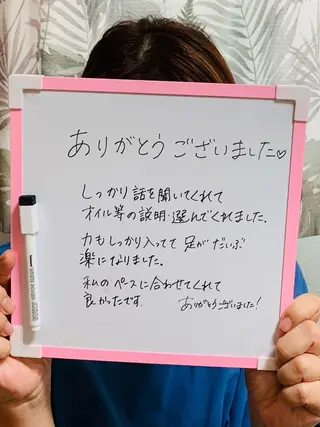 ありがとうございました♡
しっかり話を聞いてくれて
オイル等の説明・選んでくれました。
力もしっかり入ってて 足がだいぶ
楽になりました。
私のペースに合わせてくれて
良かったです。 ありがとうございました!